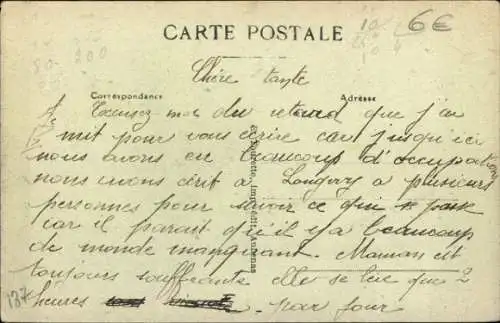 CARTE POSTALE
6€
10
10
4
200
Chère tante
Correspondance
Adresse
Excusez-moi du retard que j'ai
mit pour vous écrire car jusqu'ici
nous avons eu beaucoup d'occupation
nous avons écrit à Longwy a plusieurs
personnes pour savoir ce qui se passe
car il parait qu'il y a beaucoup
de monde manquant. Maman est
toujours souffrante elle se lève que 2
heures par jour
187